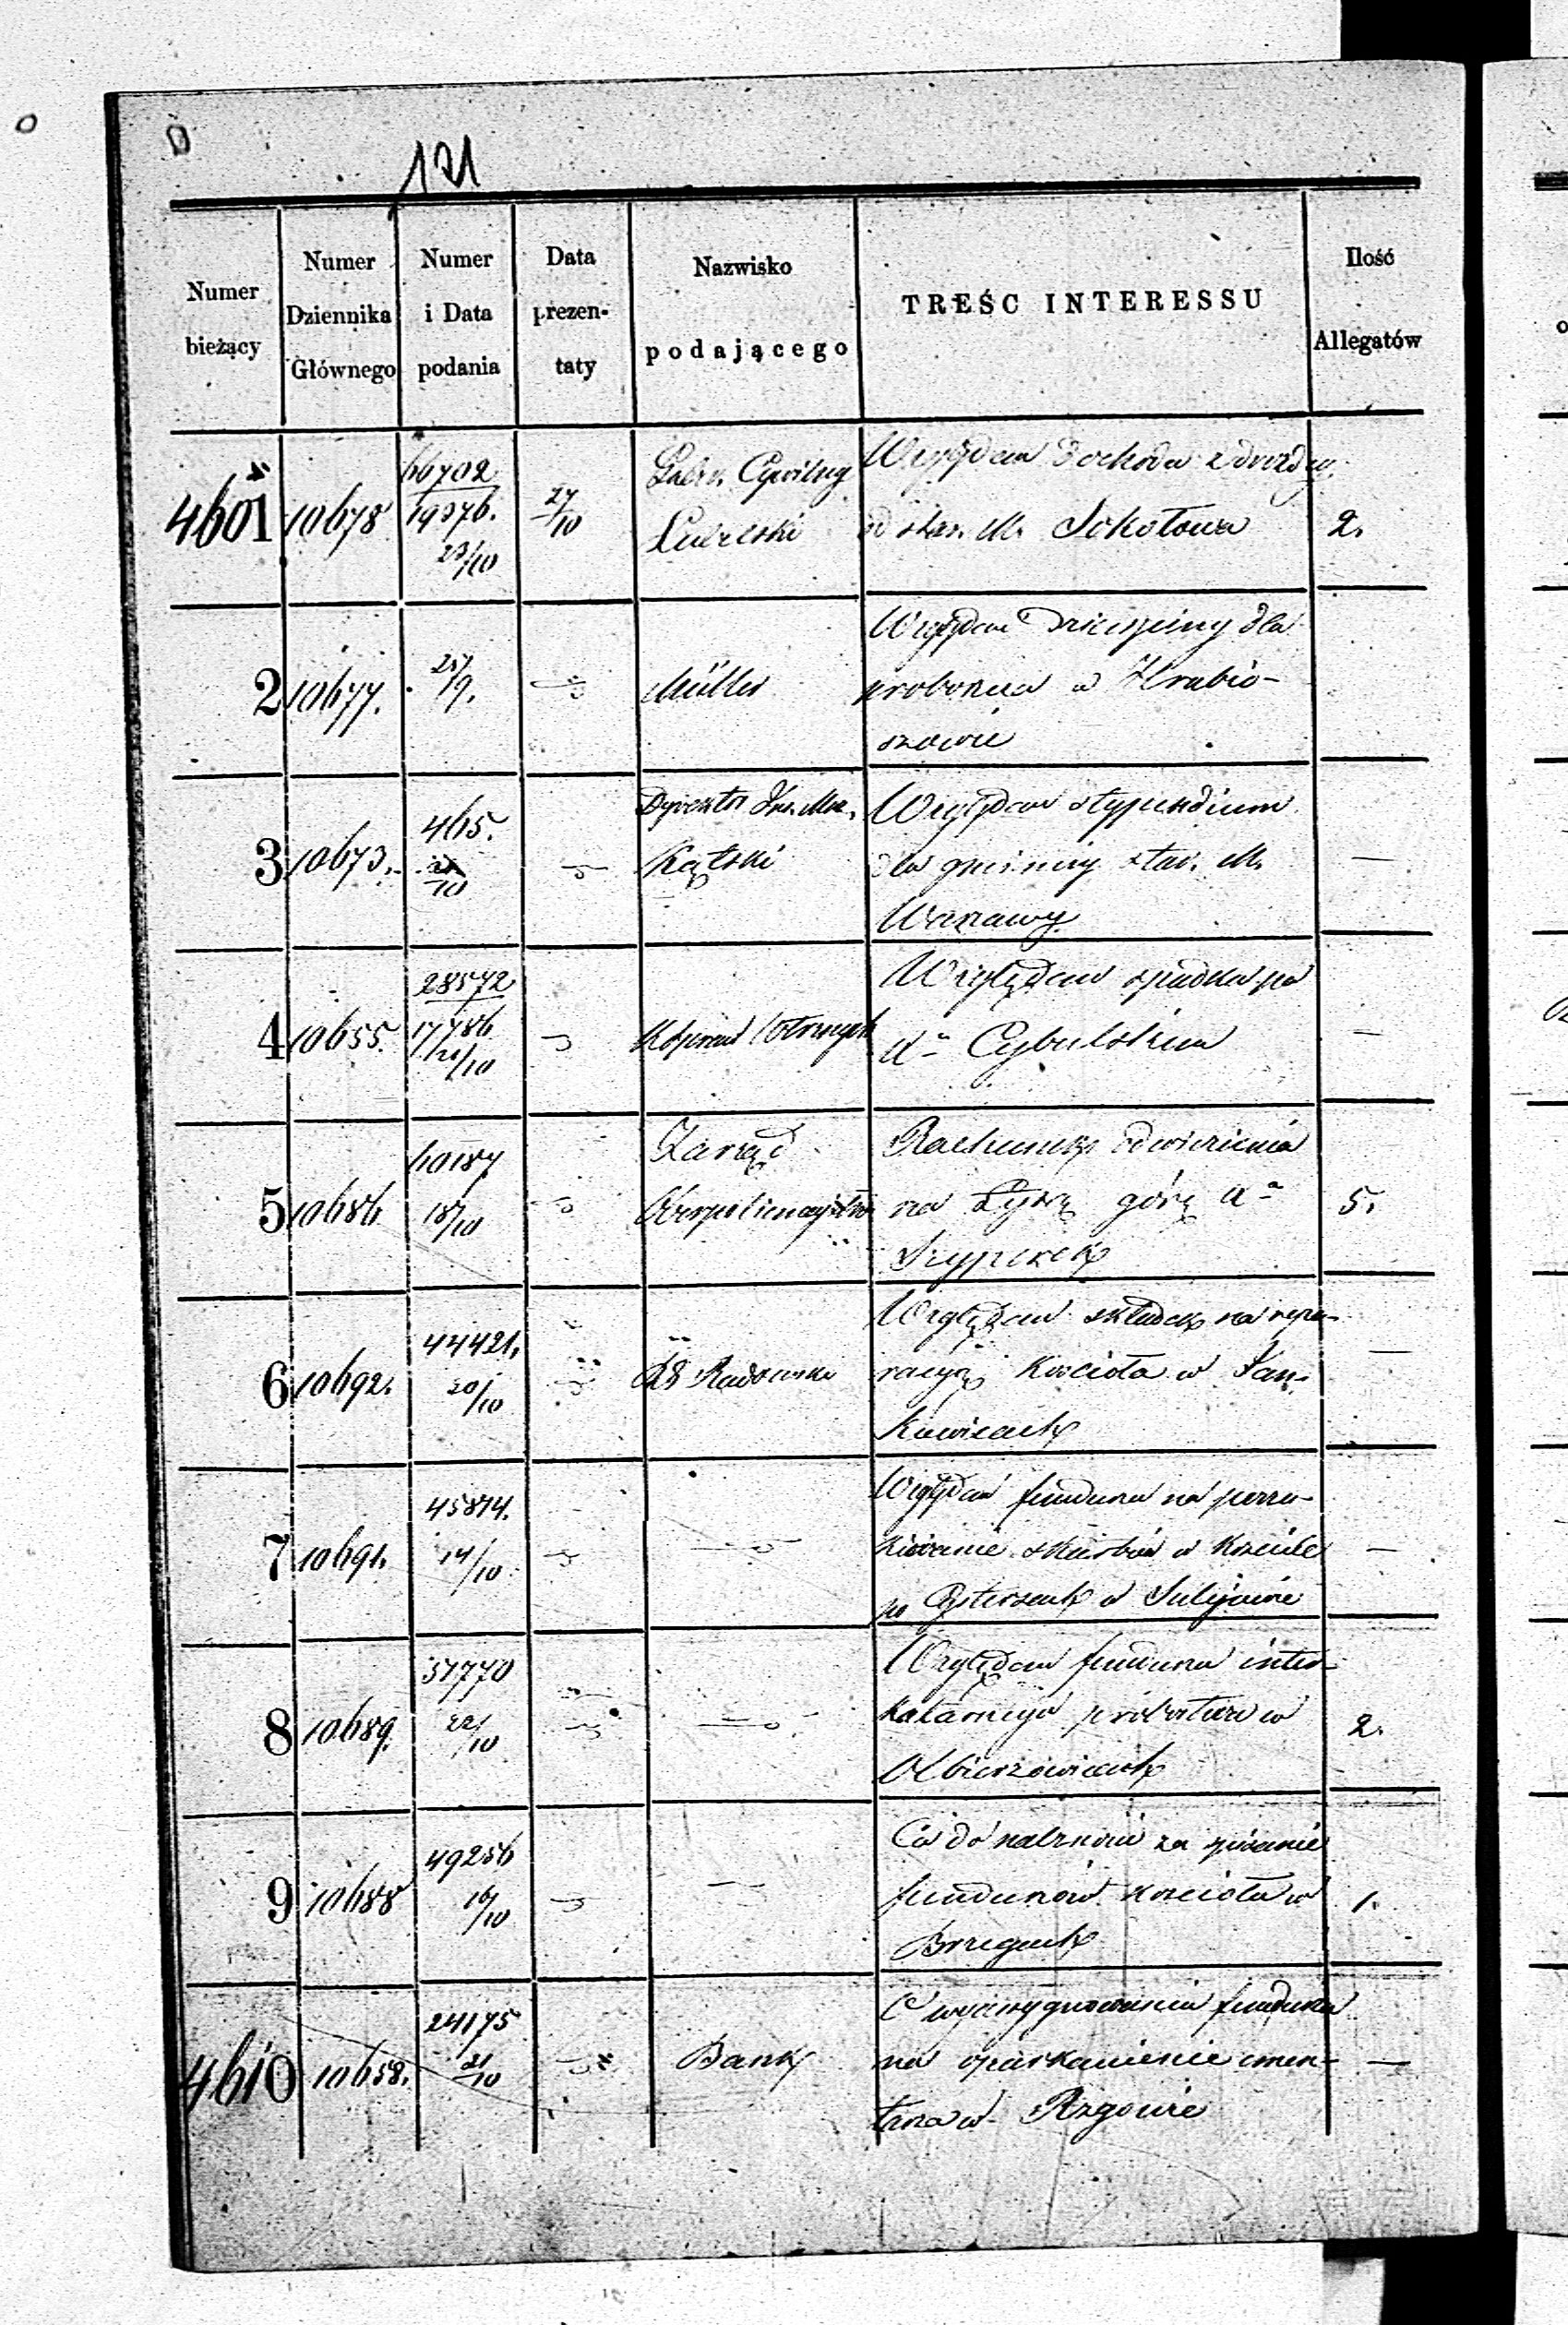 121
Numer bieżący
Numer Dziennika Głównego
Numer i Data podania
Data prezen- taty
Nazwisko podającego
TREŚC INTERESSU
Ilość Allegatów
4601
10678
66702
19376.
23/10
27/10
Gubr. Cywilny
Lubelski
Względem dochodu z
od star. M. Sokołowa
2.
2
10677.
25/9.
Müller
Względem dziesięciny dla
proboszcza w Hrubie-
szowie
3
10673.
465.
Dyrektor Ins. Muz.
Kątski
Względem stypendium
dla gminy star. M.
Warszawy
—
4
10655.
28572
17786
21/10
Względem spadku po
Xu Cybulskim
—
5
10686
60187
18/10
Zarząd
Rachunek odwiezienia
na Łysą górę Xa
Szyperek
5.
6
10692.
44421.
20/10
RG Radomski
Względem składek na repa-
racyą Kościoła w Jan-
kowicach
—
7
10691.
45814.
14/10
Względem funduszu na poszu-
kiwanie skarbów w Kościele
po Cystersach w Sulejowie
—
8
10689.
37770
22/10
Względem funduszu inter-
kalarnego probostwa w
Olbierzowicach
2.
9
10688
49256
16/10
Co do należności za spisanie
funduszów kościoła w
Brzegach
1.
4610
10658.
24175
21/10
Bank
O wyasygnowaniu funduszu
na oparkanienie cmen-
tarza w Rzgowie
—